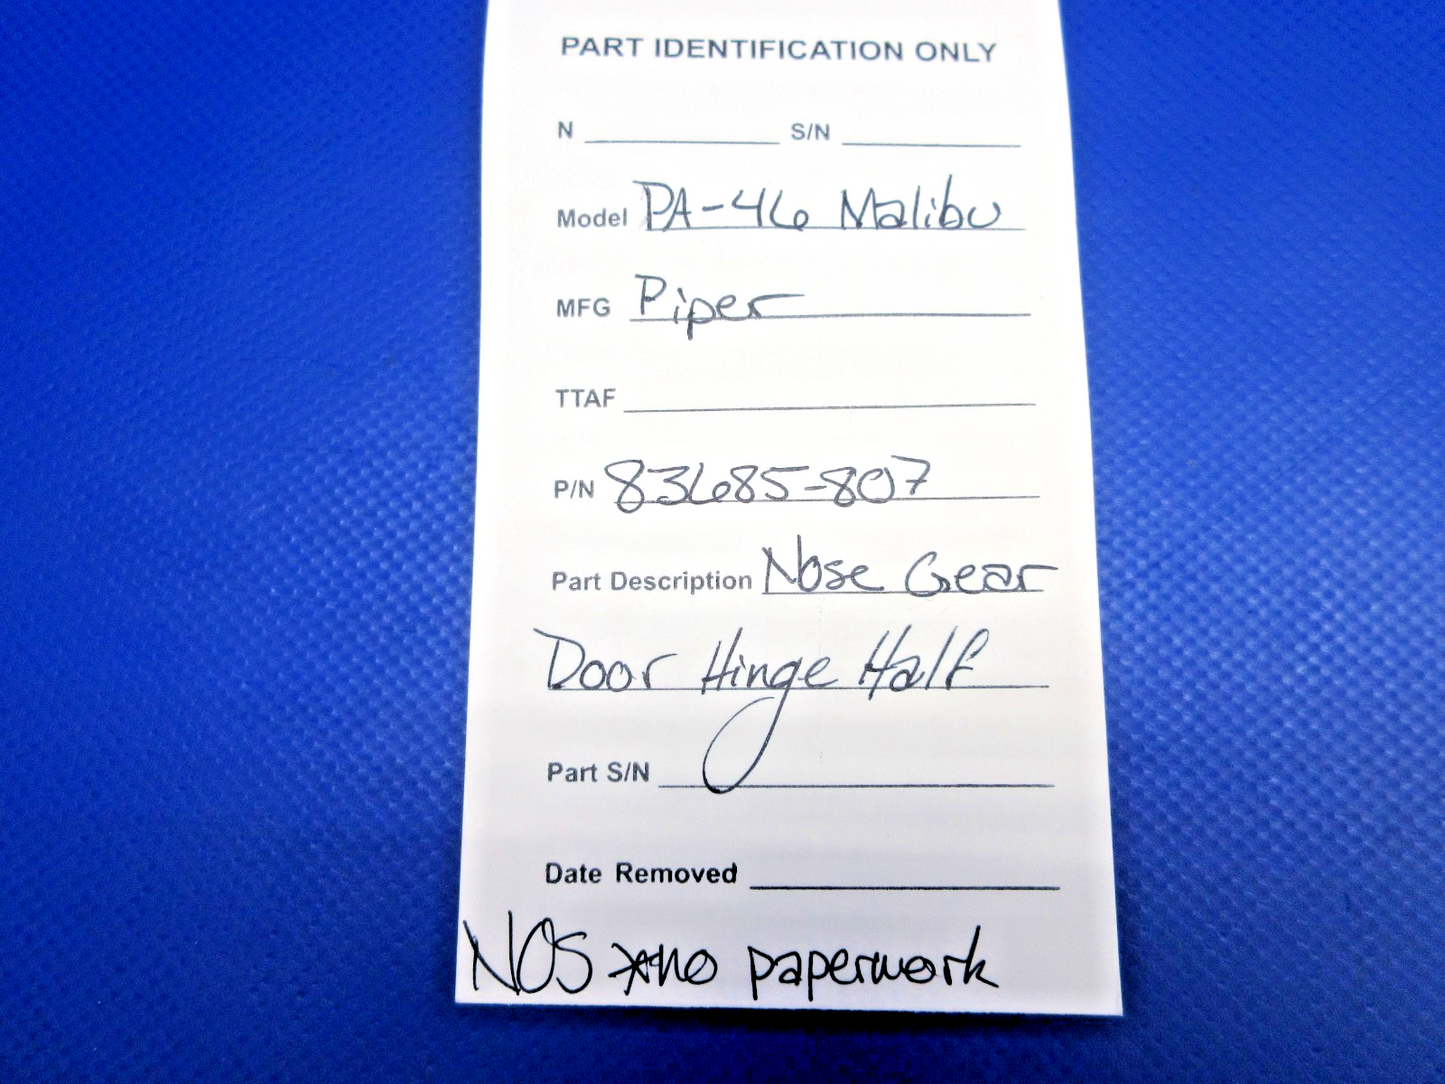 PART IDENTIFICATION ONLY
N S/N
Model PA-46 Malibu
MFG Piper
TTAF
P/N 83685-807
Part Description Nose Gear
Door Hinge Half
Part S/N
Date Removed
NOS *no paperwork